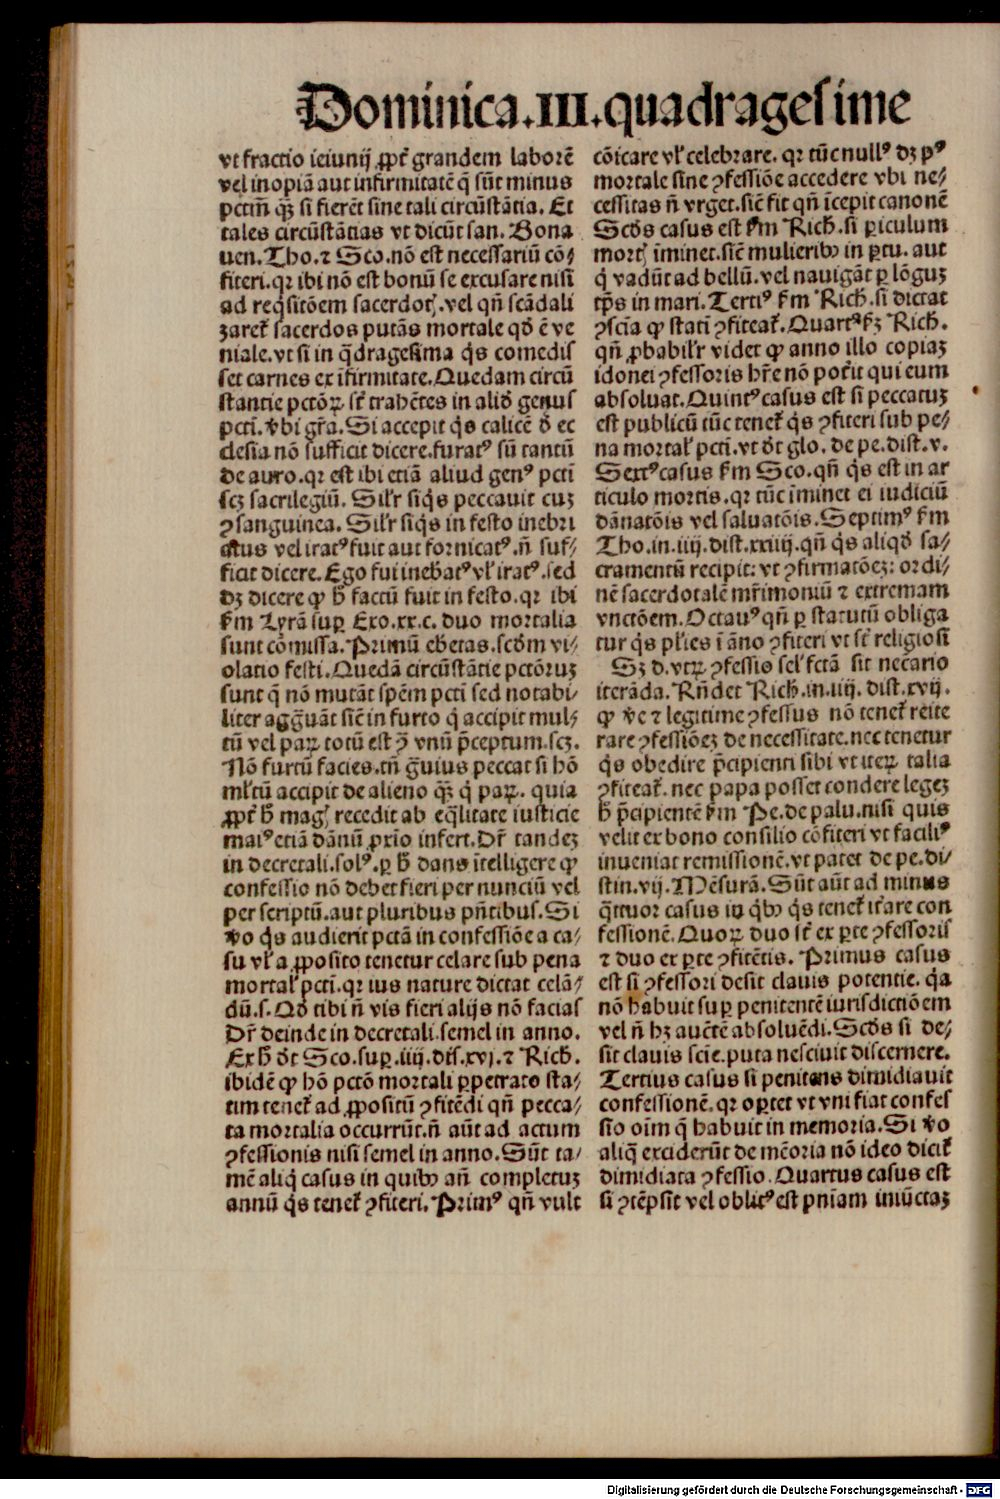 Dominica.III.quadragesime
vt fractio ieiunij ꝓpt̄ grandem laborē
vel inopiā aut infirmitatē q̄ sūt minus
pctm̄ qʒ si fierēt sine tali circūstātia. Et
tales circūstātias vt dicūt san. Bona
uen. Tho. ⁊ Sco. nō est necessariū cō⸗
fiteri. qr ibi nō est bonū se excusare nisi
ad reqͥsitōem sacerdotꝭ. vel qn̄ scādali
zaret᷑ sacerdos putās mortale qđ ē ve
niale. vt si in q̄dragesima qͥs comedis
set carnes ex īfirmitate. Quedam circū
stantie pctōꝝ st̄ trahētes in aliđ genus
pcti. v̓bi gr̄a. Si accepit qͥs calicē đ ec
clesia nō sufficit dicere. furatꝰ sū tantū
de auro. qr est ibi etiā aliud genꝰ pcti
scʒ sacrilegiū. Sil̓r siqͥs peccauit cuʒ
ꝯsanguinea. Sil̓r siqͥs in festo inebri
atus vel iratꝰ fuit aut fornicatꝰ. n̄ suf⸗
ficit dicere. Ego fui inebꝛatꝰ vl̓ iratꝰ. sed
dʒ dicere ꝙ h̄ factū fuit in festo. qr ibi
ẜm Lyrā suꝑ Exo. xx. c. duo mortalia
sunt cōmissa. Primū ebetas. scđm vi⸗
olatio festi. Quedā circūstātie pctōruʒ
sunt q̄ nō mutāt spēm pcti sed notabi⸗
liter agḡuāt sic̄ in furto qͥ accipit mul⸗
tū vel paꝝ totū est ꝯ̄ vnū p̄ceptum. scʒ.
Nō furtū facies. tn̄ g̃uius peccat si hō
ml̓tū accipit de alieno qʒ qͥ paꝝ. quia
ꝓpt̄ h̄ magꝭ recedit ab eq̄litate iusticie
maiꝰ etiā dānū ꝓxīo infert. Dr̄ tandeʒ
in decretali. solꝰ. ꝑ h̄ dans ītelligere ꝙ
confessio nō debet fieri per nunciū vel
per scriptū. aut pluribus pn̄tibus. Si
v̓o qͥs audierit pctā in confessiōe a ca⸗
su vl̓ a ꝓposito tenetur celare sub pena
mortal̓ pcti. qr ius nature dictat celā⸗
dū. s. Qđ tibi n̄ vis fieri alijs nō facias
Dr̄ deinde in decretali. semel in anno.
Ex h̄ đt Sco. suꝑ. iiij. dis. xvj. ⁊ Rich.
ibidē ꝙ hō pctō mortali ꝑpetrato sta⸗
tim tenet᷑ ad ꝓpositū ꝯfitēdi qn̄ pecca⸗
ta mortalia occurrūt. n̄ aūt ad actum
ꝯfessionis nisi semel in anno. Sūt ta⸗
mē aliqͥ casus in quibꝫ an̄ completuʒ
annū qͥs tenet᷑ ꝯfiteri. Primꝰ qn̄ vult
cōicare vl̓ celebrare. qr tūc nullꝰ dʒ pꝰ
mortale sine ꝯfessiōe accedere vbi ne⸗
cessitas n̄ vrget. sic̄ fit qn̄ īcepit canonē
Scđs casus est ẜm Rich. si ꝑiculum
mortꝭ īminet. sic̄ mulieribꝫ in ꝑtu. aut
qͥ vadūt ad bellū. vel nauigāt ꝑ lōguʒ
tp̄s in mari. Tertiꝰ ẜm Rich. si dictat
ꝯsciā ꝙ stati ꝯfiteat᷑. Quartꝰ ẜʒ Rich.
qn̄ ꝓbabil̓r videt ꝙ anno illo copiaʒ
idonei ꝯfessoris hr̄e nō pot̄it qui eum
absoluat. Quintꝰ casus est si peccatuʒ
est publicū tūc tenet᷑ qͥs ꝯfiteri sub pe⸗
na mortal̓ pcti. vt đt glo. de pe. dist. v.
Sextꝰ casus ẜm Sco. qn̄ qͥs est in ar
ticulo mortis. qr tūc īminet ei iudiciū
dānatōis vel saluatōis. Septimꝰ ẜm
Tho. in. iiij. dist. xxiiij. qn̄ qͥs aliqđ sa⸗
cramentū recipit: vt ꝯfirmatōeʒ: ordi⸗
nē sacerdotalē mr̄imoniū ⁊ extremam
vnctōem. Octauꝰ qn̄ ꝑ statutū obliga
tur qͥs pl̓ies ī āno ꝯfiteri vt st̄ religiosi
Sʒ d. vtꝝ ꝯfessio sel̓ fctā sit nec̄ario
iterāda. Rn̄det Rich. in. iiij. dist. xvij.
ꝙ v̓e ⁊ legitime ꝯfessus nō tenet᷑ reite
rare ꝯfessiōeʒ de necessitate. nec tenetur
qͥs obedire p̄cipienti sibi vt iteꝝ talia
ꝯfiteat᷑. nec papa posset condere legeʒ
h̄ p̄cipientē ẜm Pe. de palu. nisi quis
velit ex bono consilio cōfiteri vt faciliꝰ
inueniat remissionē. vt patet de pe. di⸗
stin. vij. Mēsurā. Sūt aūt ad minus
q̄ttuor casus in qͥbꝫ qͥs tenet᷑ it̄are con
fessionē. Quoꝝ duo st̄ ex ꝑte ꝯfessoris
⁊ duo ex ꝑte ꝯfitētis. Primus casus
est si ꝯfessori desit clauis potentie. qͥa
nō habuit suꝑ penitentē iurisdictiōem
vel n̄ hʒ auc̄tē absoluēdi. Scđs si de⸗
sit clauis scie. puta nesciuit discernere.
Tertius casus si penitens dimidiauit
confessionē. qr oꝑtet vt vni fiat confes
sio oīm q̄ habuit in memoria. Si v̓o
aliq̄ exciderūt de mēoria nō ideo dicit᷑
dimidiata ꝯfessio. Quartus casus est
si ꝯtēpsit vel oblitꝰ est pn̄iam iniūctaʒ
Digitalisierung gefördert durch die Deutsche Forschungsgemeinschaft - DFG